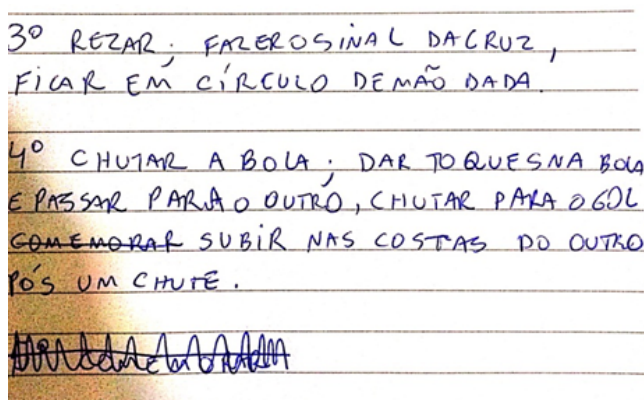 3º REZAR; FAZER O SINAL DA CRUZ,
FICAR EM CÍRCULO DE MÃO DADA.
4º CHUTAR A BOLA; DAR TOQUES NA BOLA
E PASSAR PARA O OUTRO, CHUTAR PARA O GOL
COMEMORAR SUBIR NAS COSTAS DO OUTRO
PÓS UM CHUTE.